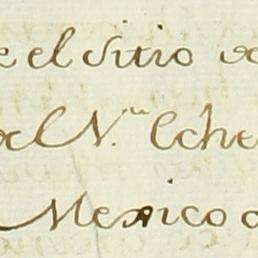 e el sitio de
de N.ra Eche
Mexico d